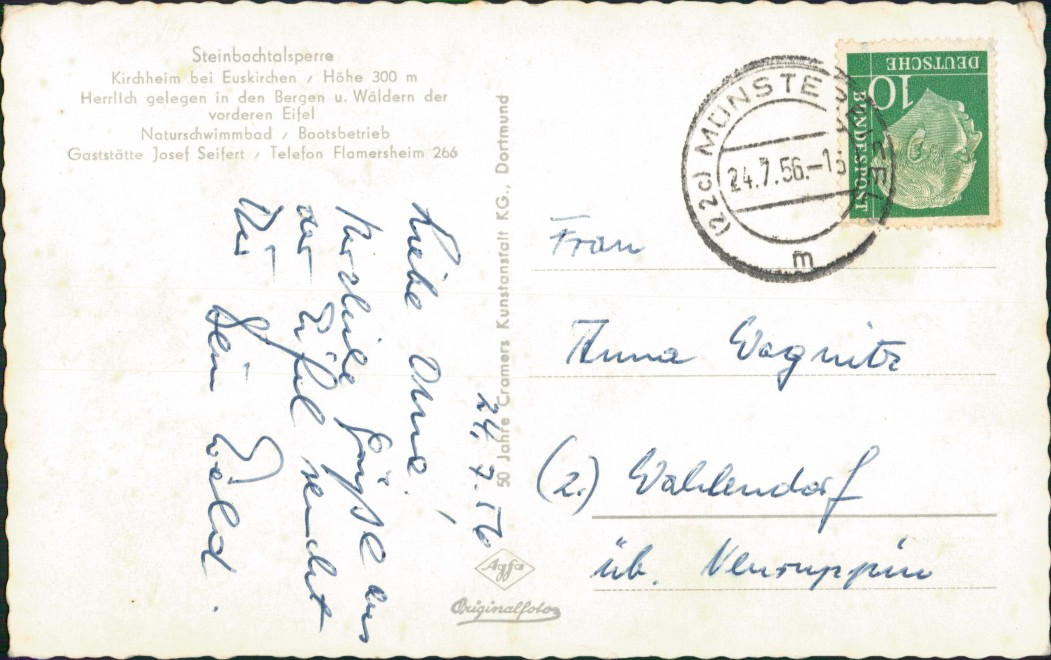 Steinbachtalsperre
Kirchheim bei Euskirchen / Höhe 300 m
Herrlich gelegen in den Bergen u. Wäldern der
vorderen Eifel
Naturschwimmbad / Bootsbetrieb
Gaststätte Josef Seifert / Telefon Flamersheim 266
24.7.56
Liebe Oma!
Herzliche Grüße aus
der Eifel sendet
Dir
Dein Ewald.
50 Jahre Cramers Kunstanstalt KG., Dortmund
Agfa
Originalfoto
(22c) MÜNSTEREIFEL
24.7.56.-13
m
DEUTSCHE
BUNDESPOST
10
Frau
Anna Wagnitz
(2.) Wahlendorf
üb. Neuruppin